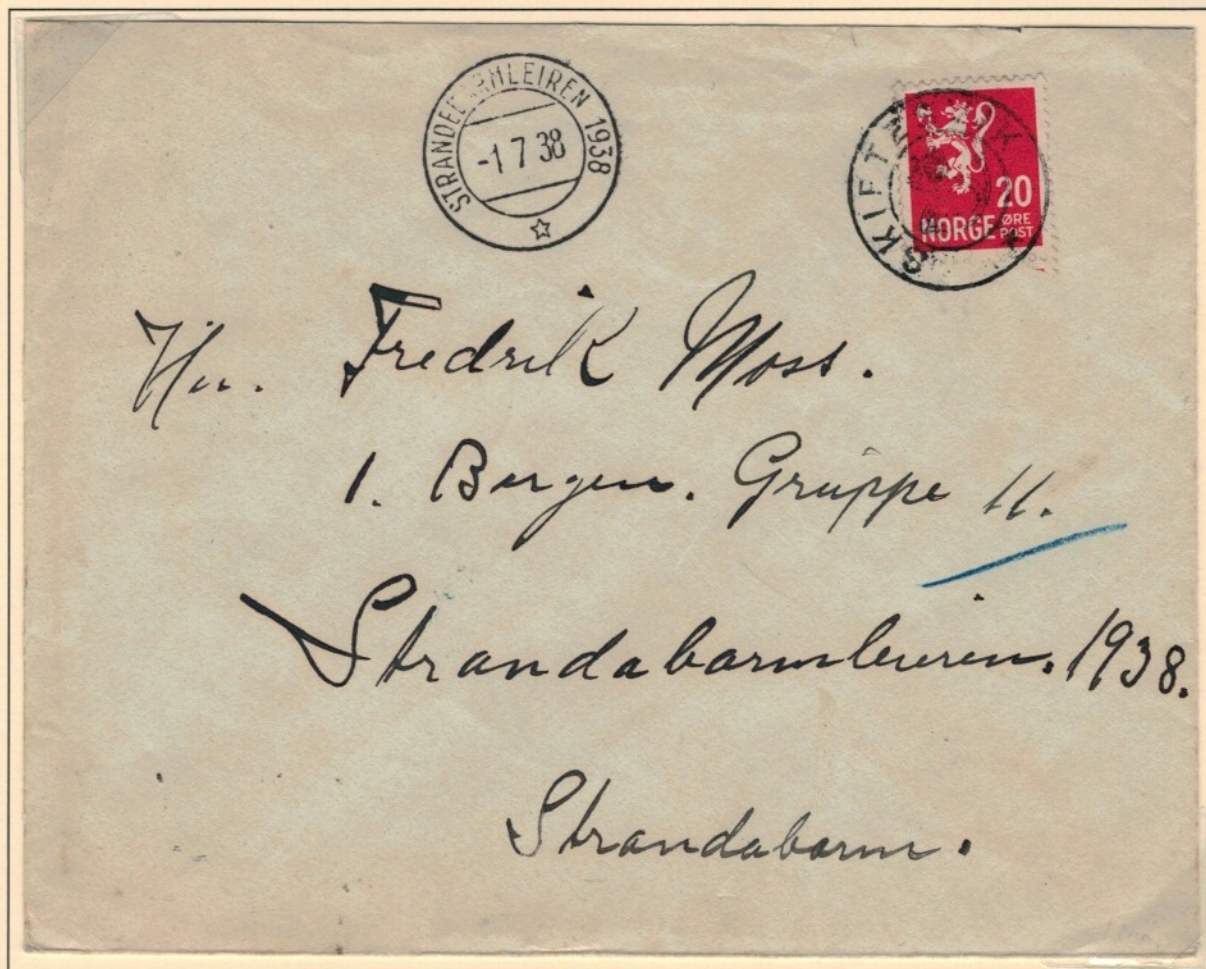 STRANDEBARMLEIREN 1938
-1 7 38
20
NORGE ØRE POST
Hr. Fredrik Moss.
1. Bergen. Gruppe 11.
Strandabarmleieren. 1938.
Strandabarm.